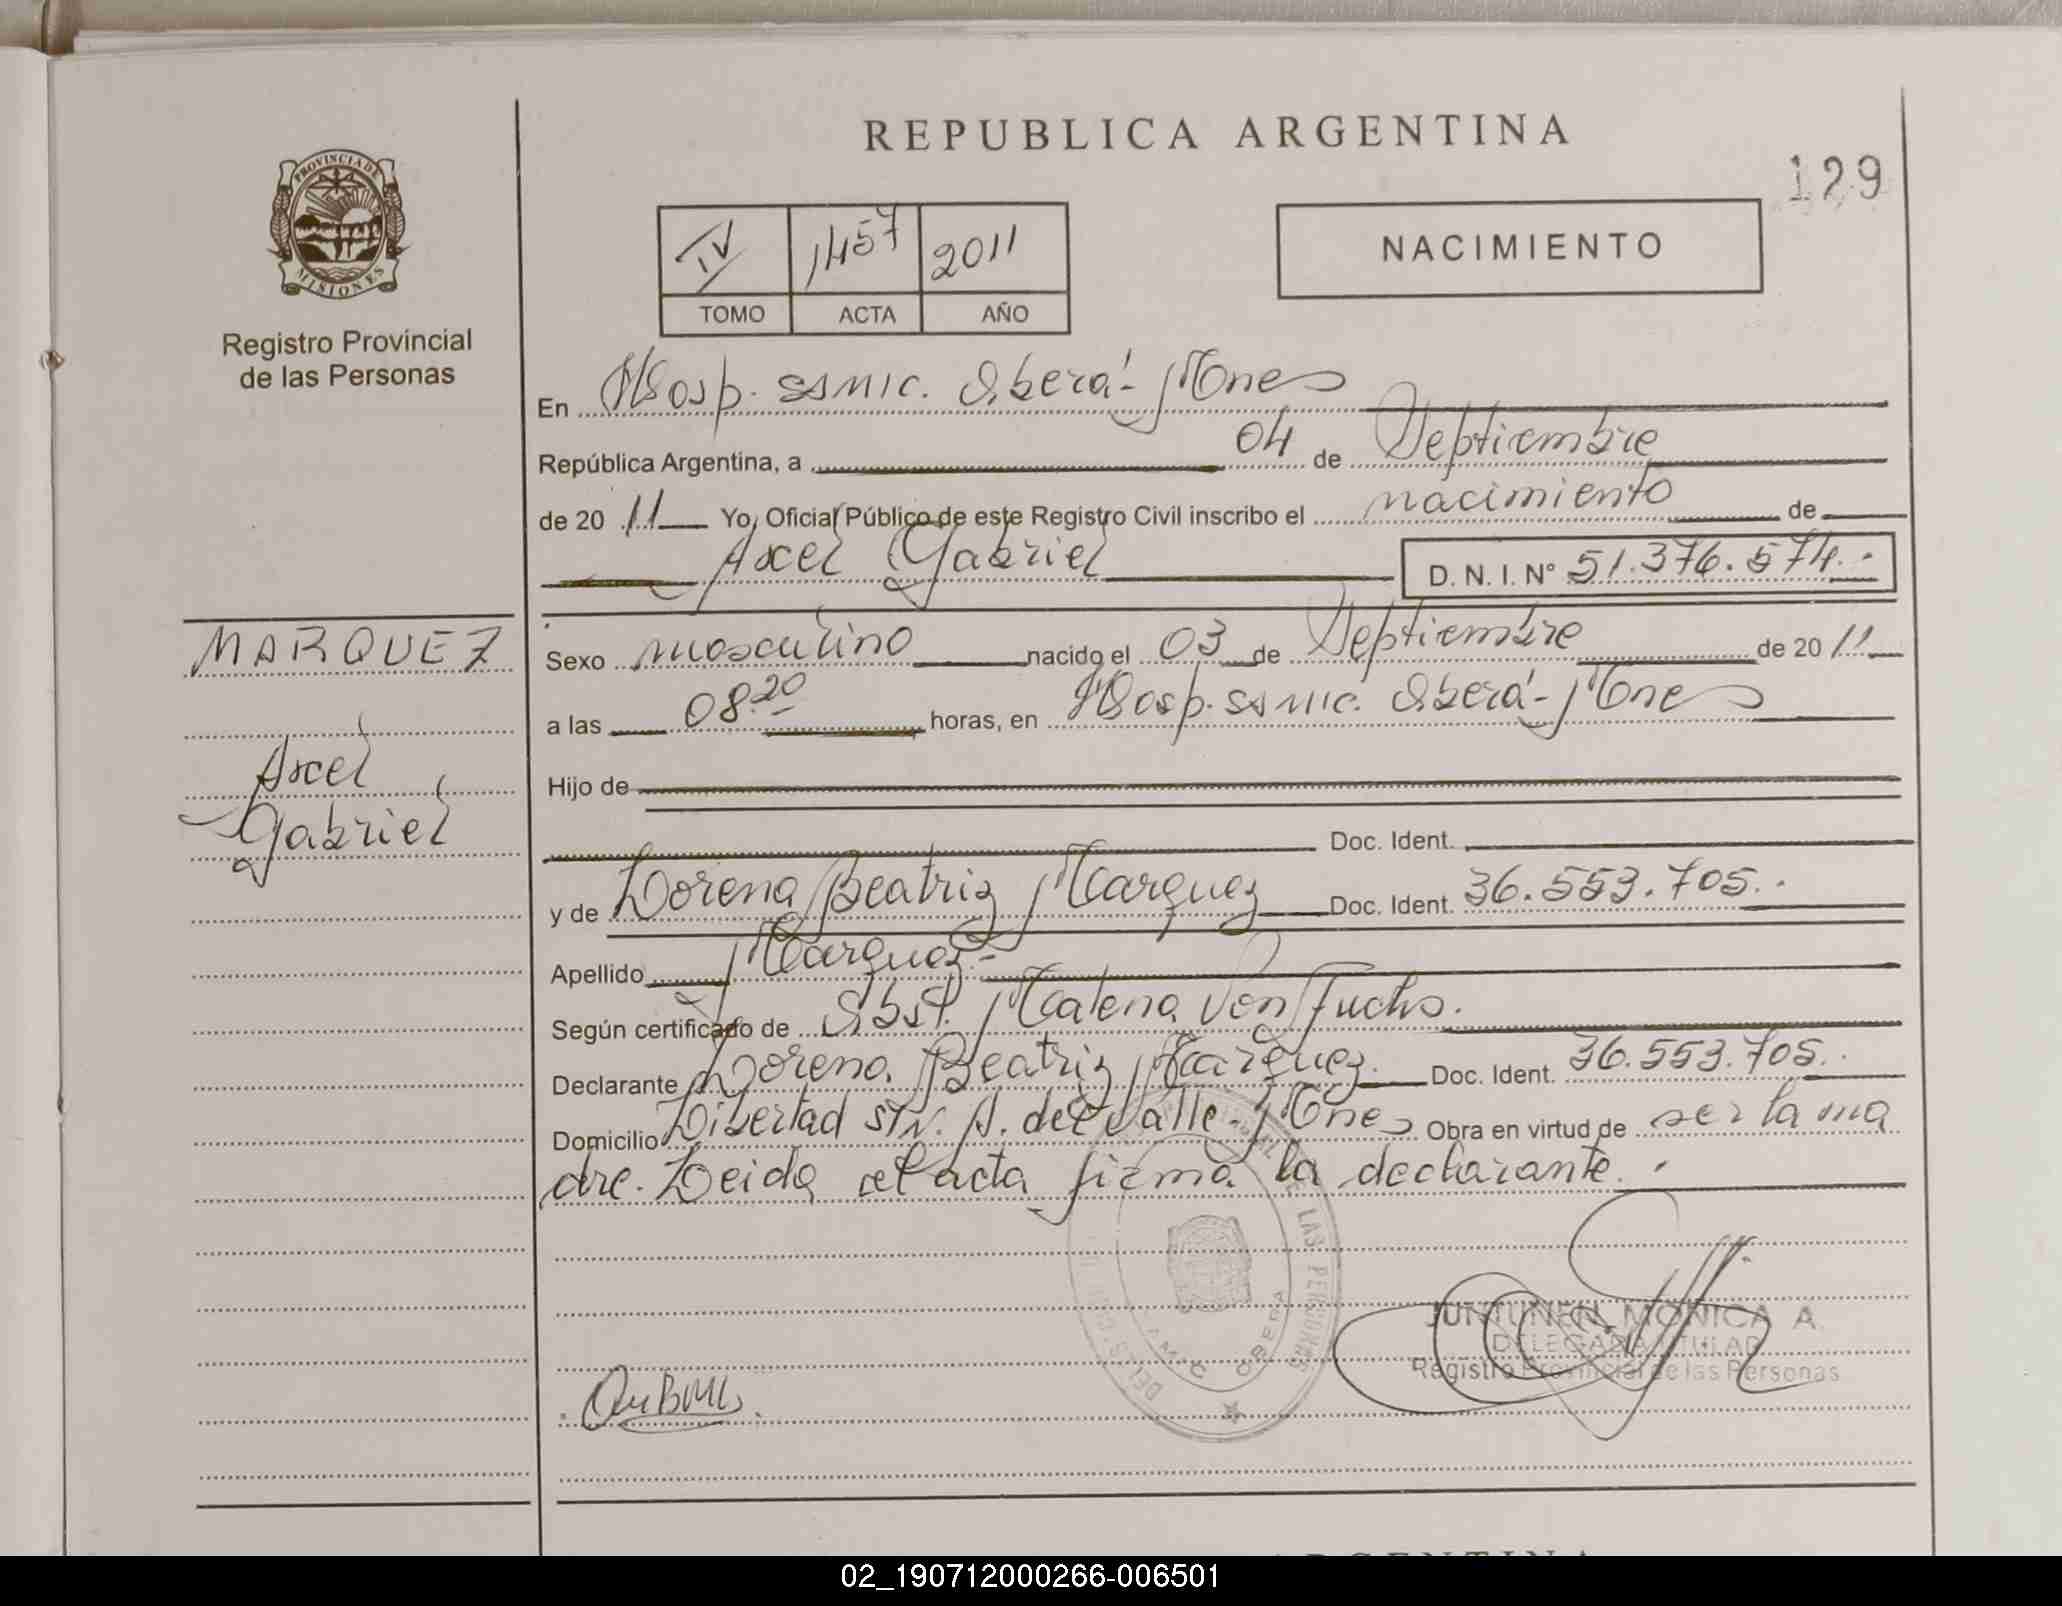 REPUBLICA ARGENTINA
129
PROVINCIA DE
MISIONES
Registro Provincial
de las Personas
IV 1457 2011
TOMO ACTA AÑO
NACIMIENTO
En Hosp. SAMIC. Oberá - Mnes
República Argentina, a 04 de Septiembre
de 20 11 Yo, Oficial Público de este Registro Civil inscribo el nacimiento de
Axcel Gabriel D. N. I. N° 51.376.574.-
MARQUEZ
Axcel
Gabriel
Sexo masculino nacido el 03 de Septiembre de 20 11
a las 08.20 horas, en Hosp. SAMIC. Oberá - Mnes
Hijo de
Doc. Ident.
y de Lorena Beatriz Marquez Doc. Ident. 36.553.705.-
Apellido Marquez.-
Según certificado de Obst. Malena Von Fuchs.
Declarante Lorena Beatriz Marquez. Doc. Ident. 36.553.705.-
Domicilio Libertad S/N. A. del Valle - Mnes Obra en virtud de ser la ma
dre. Leida el acta firma la declarante.-
DE LAS PERSONAS
OBERA
JUNTUNEN, MONICA A.
DELEGADA TITULAR
Registro Provincial de las Personas
ARGENTINA
02_190712000266-006501